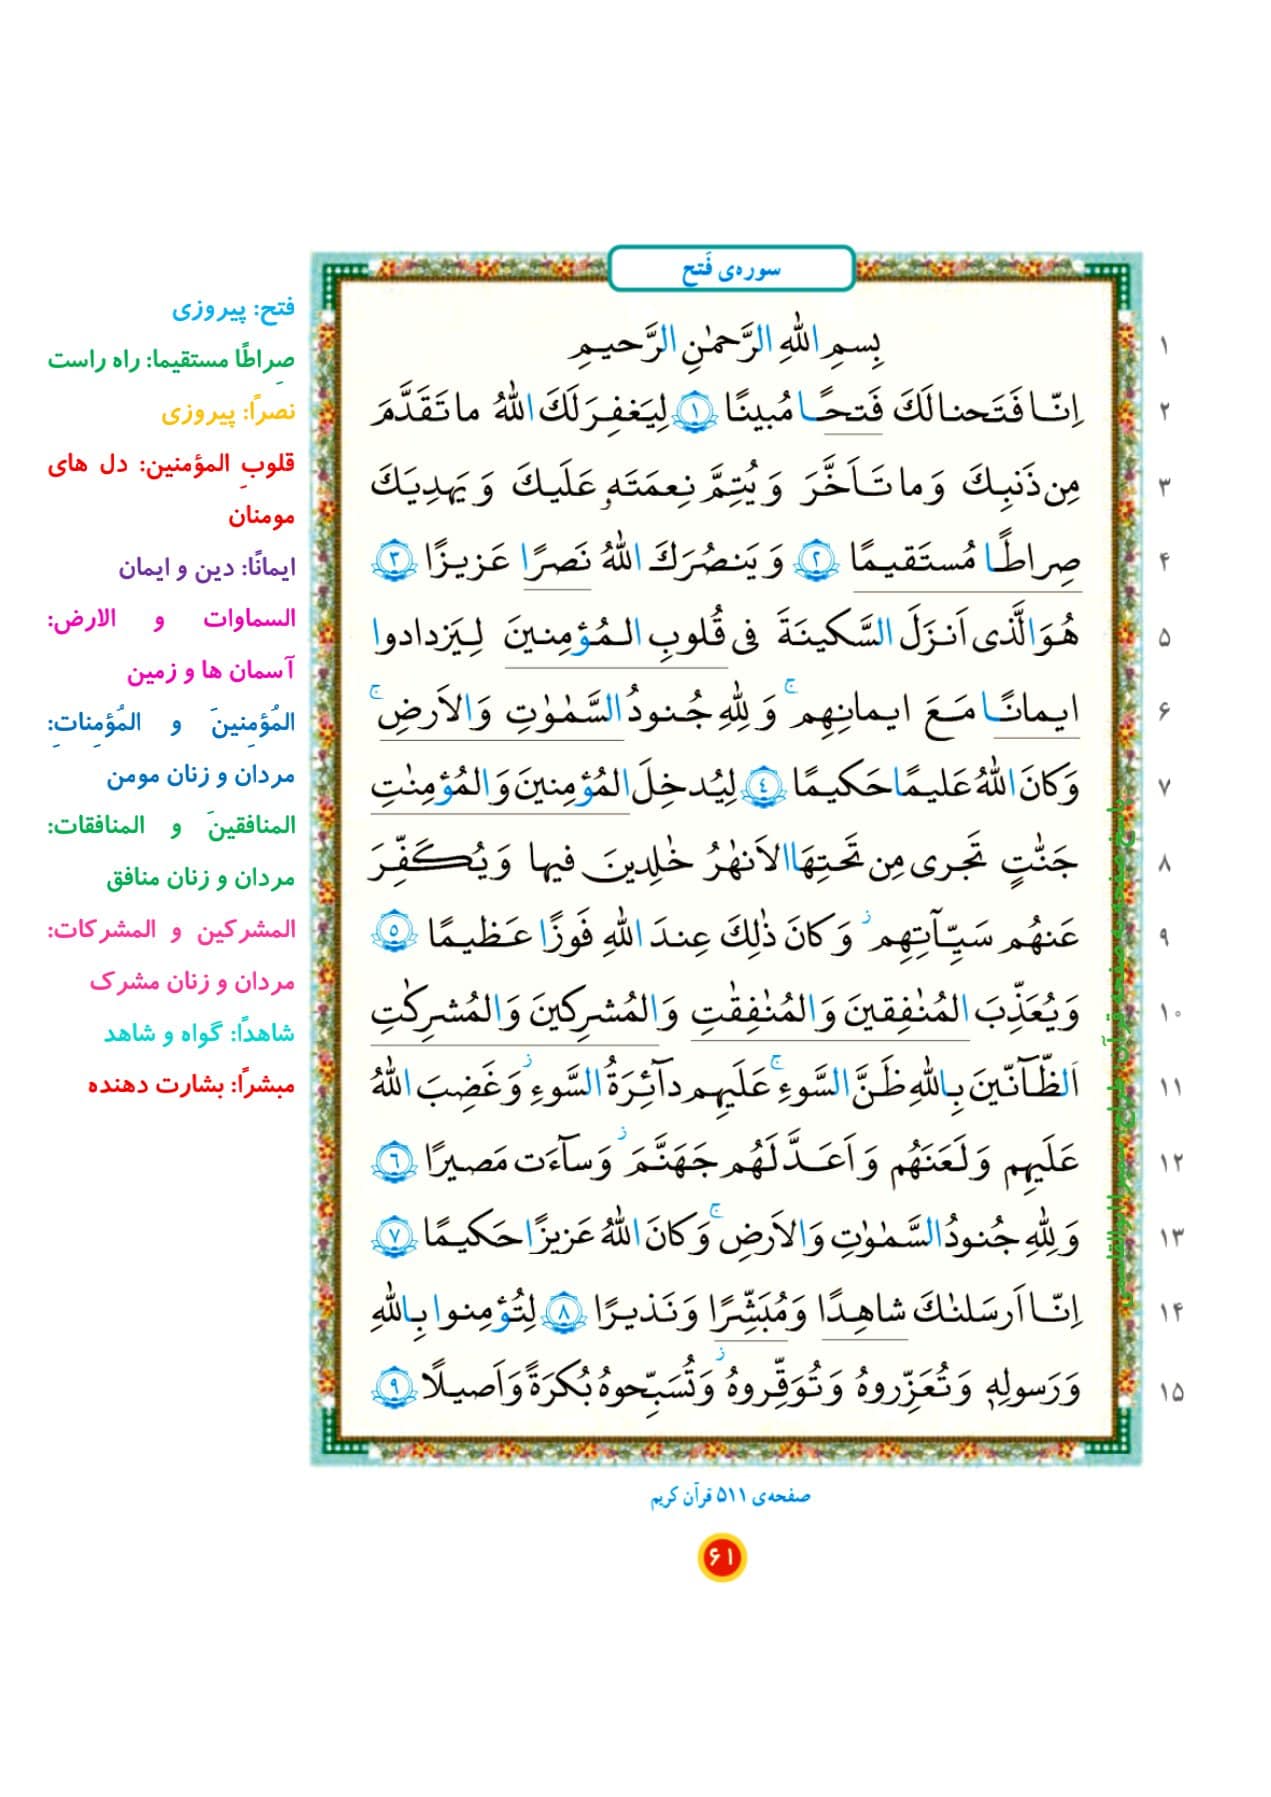 سوره‌ی فَتح
۱ بِسمِ اللّٰهِ الرَّحمٰنِ الرَّحیمِ
۲ اِنّا فَتَحنا لَكَ فَتحًا مُبینًا ۱ لِیَغفِرَ لَكَ اللّٰهُ ما تَقَدَّمَ
۳ مِن ذَنبِكَ وَ ما تَاَخَّرَ وَ یُتِمَّ نِعمَتَهٗ عَلَیكَ وَ یَهدِیَكَ
۴ صِراطًا مُستَقیمًا ۲ وَ یَنصُرَكَ اللّٰهُ نَصرًا عَزیزًا ۳
۵ هُوَ الَّذی اَنزَلَ السَّكینَةَ فی قُلوبِ المُؤمِنینَ لِیَزدادوا
۶ ایمانًا مَعَ ایمانِهِم ۚ وَ لِلّٰهِ جُنودُ السَّمٰوٰتِ وَ الاَرضِ ۚ
۷ وَ كانَ اللّٰهُ عَلیمًا حَكیمًا ۴ لِیُدخِلَ المُؤمِنینَ وَ المُؤمِنٰتِ
۸ جَنّٰتٍ تَجری مِن تَحتِهَا الاَنهٰرُ خٰلِدینَ فیها وَ یُكَفِّرَ
۹ عَنهُم سَیِّـآتِهِم ز وَ كانَ ذٰلِكَ عِندَ اللّٰهِ فَوزًا عَظیمًا ۵
۱۰ وَ یُعَذِّبَ المُنٰفِقینَ وَ المُنٰفِقٰتِ وَ المُشرِكینَ وَ المُشرِكٰتِ
۱۱ اَلظّآنّینَ بِاللّٰهِ ظَنَّ السَّوءِ ۚ عَلَیهِم دآئِرَةُ السَّوءِ ز وَ غَضِبَ اللّٰهُ
۱۲ عَلَیهِم وَ لَعَنَهُم وَ اَعَدَّ لَهُم جَهَنَّمَ ز وَ سآءَت مَصیرًا ۶
۱۳ وَ لِلّٰهِ جُنودُ السَّمٰوٰتِ وَ الاَرضِ ۚ وَ كانَ اللّٰهُ عَزیزًا حَكیمًا ۷
۱۴ اِنّا اَرسَلنٰكَ شاهِدًا وَ مُبَشِّرًا وَ نَذیرًا ۸ لِتُؤمِنوا بِاللّٰهِ
۱۵ وَ رَسولِهٖ وَ تُعَزِّروهُ وَ تُوَقِّروهُ ز وَ تُسَبِّحوهُ بُكرَةً وَ اَصیلًا ۹
صفحه‌ی ۵۱۱ قرآن کریم
۶۱
فتح: پیروزی
صِراطًا مستقیما: راه راست
نصرًا: پیروزی
قلوبِ المؤمنین: دل های
مومنان
ایمانًا: دین و ایمان
السماوات و الارض:
آسمان ها و زمین
المُؤمِنینَ و المُؤمِناتِ:
مردان و زنان مومن
المنافقینَ و المنافقات:
مردان و زنان منافق
المشرکین و المشرکات:
مردان و زنان مشرک
شاهدًا: گواه و شاهد
مبشرًا: بشارت دهنده